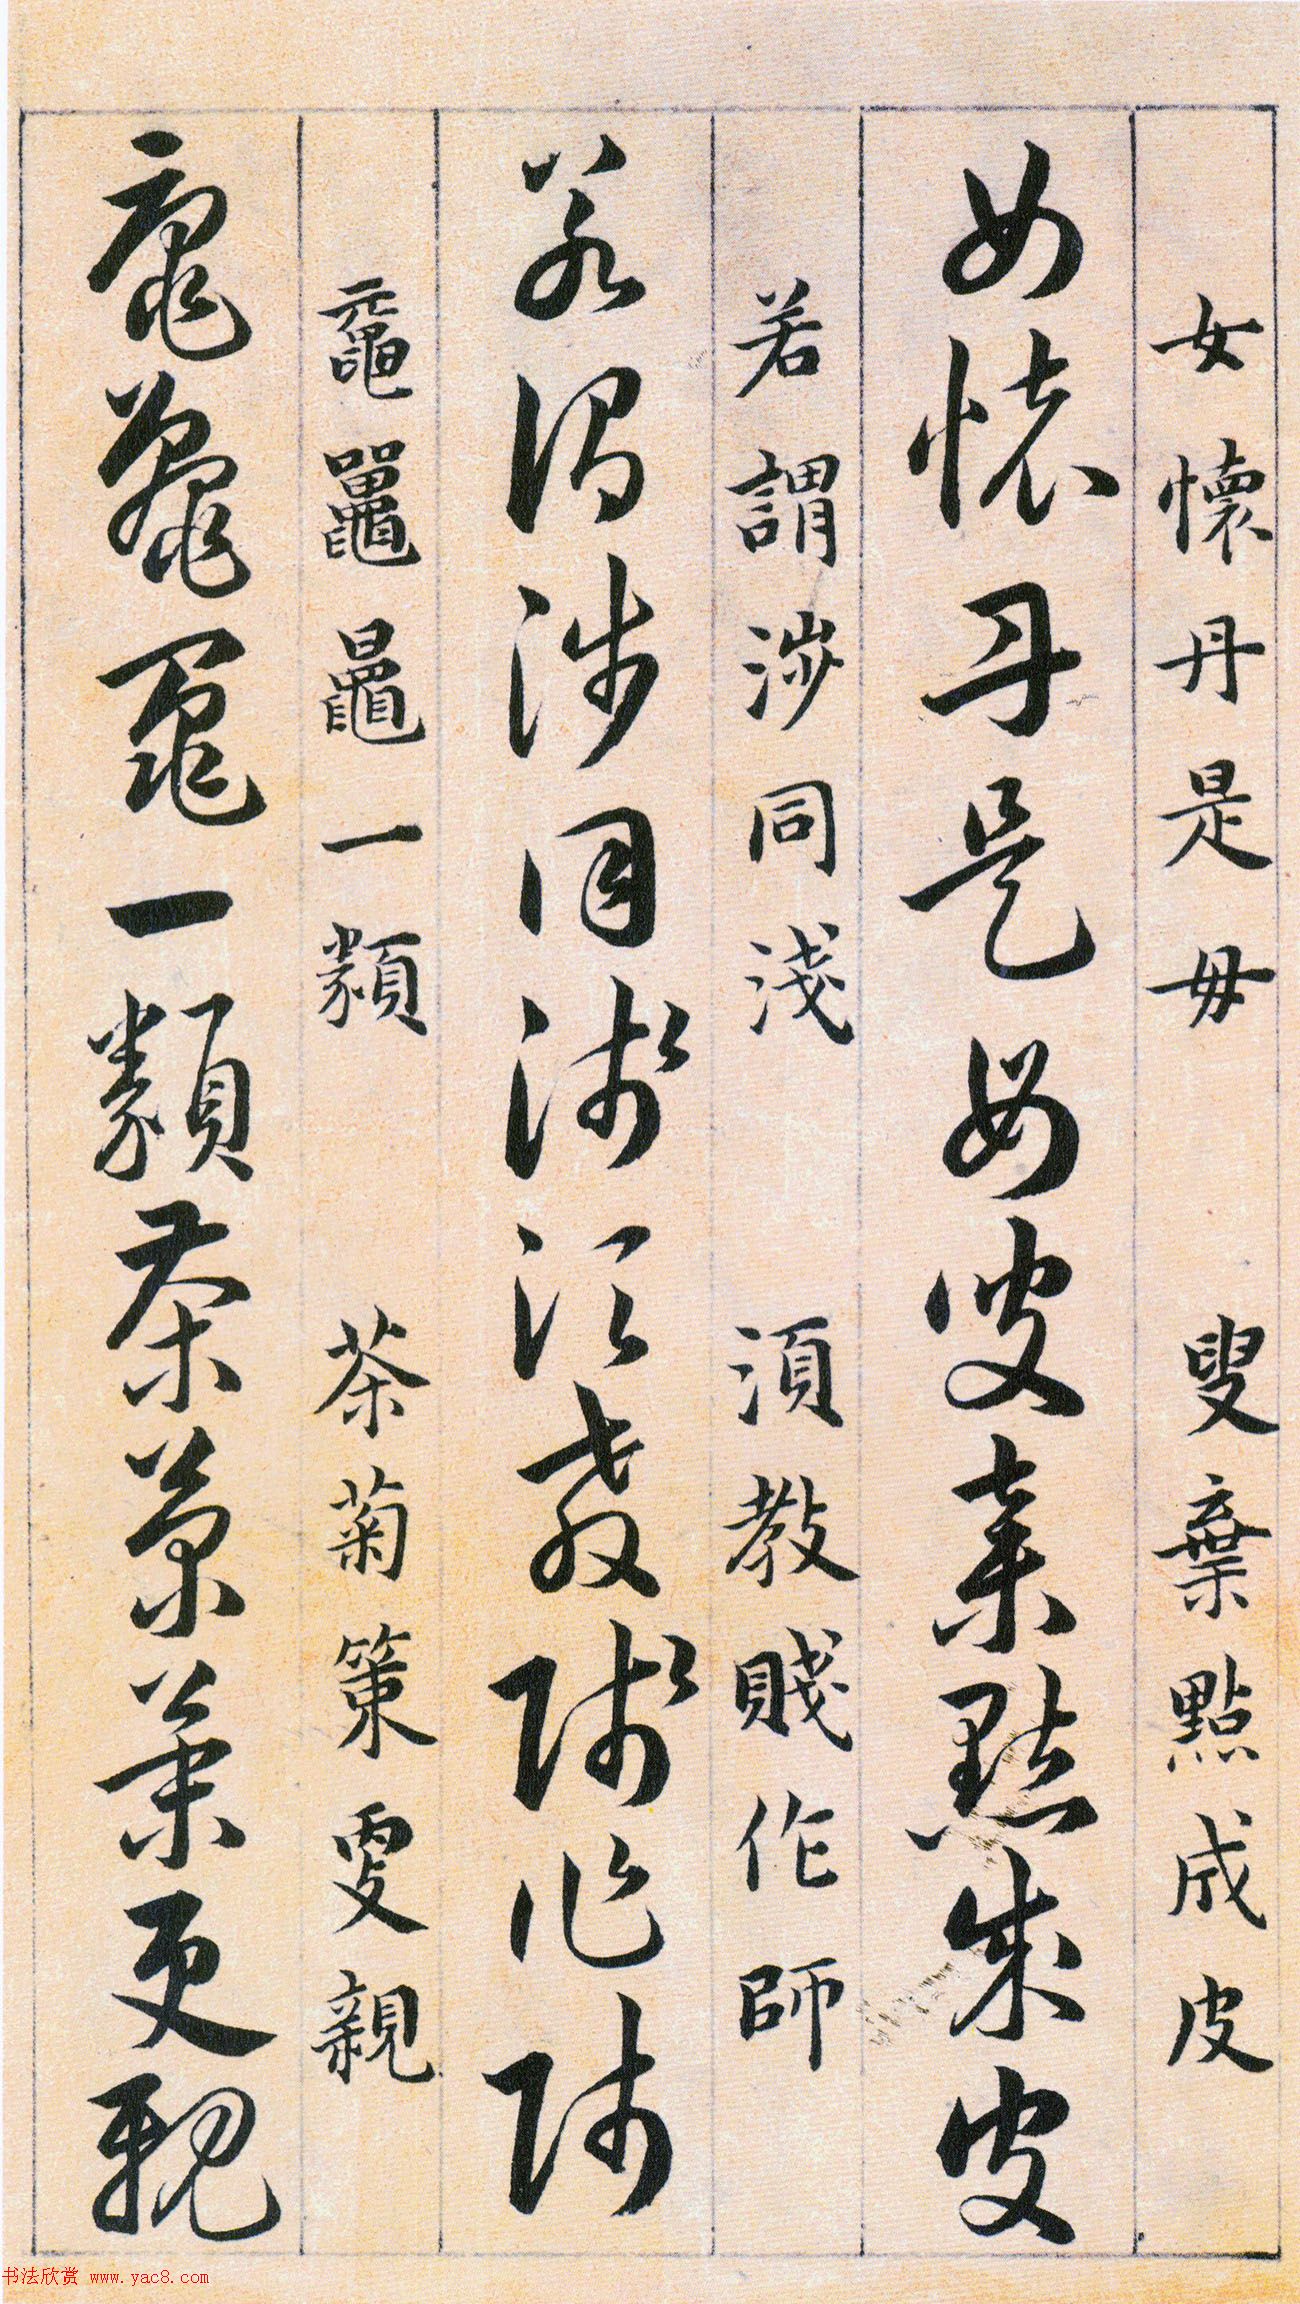 女懷丹是毋 叟棄點成皮
女懷丹是毋叟棄點成皮
若謂涉同淺 湏教賤作師
若謂涉同淺湏教賤作師
黿鼉鼂一類 茶菊策更親
黿鼉鼂一類茶菊策更親
书法欣赏 www.yac8.com